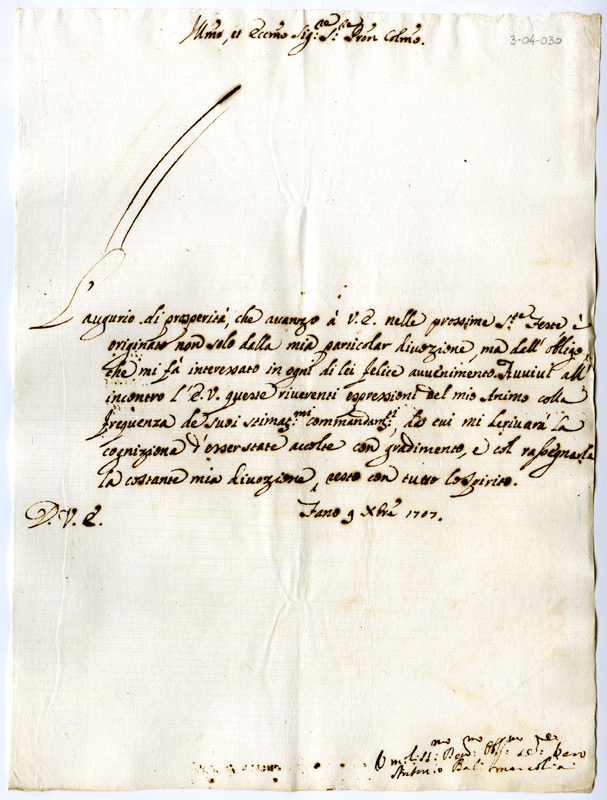 Illmo, et Eccmo Sig:re S:re Pron Colmo.
3-04-030
L'augurio di prosperità, che avanzo à V. E. nelle prossime S:te Feste è
originato non solo dalla mia particolar divozione, ma dall' obligo,
che mi fà interessato in ogni di lei felice avvenimento. Avvivi all'
incontro l'E. V. queste riverenti espressioni del mio Animo colla
frequenza de suoi stimat:mi commandam:ti, da cui mi deriuarà la
cognizione d'esser state accolte con gradimento, e col rassegnarle
la costante mia divozione, resto con tutto lo spirito.
D. V. E. Fano 9 Xbre 1707.
Antonio